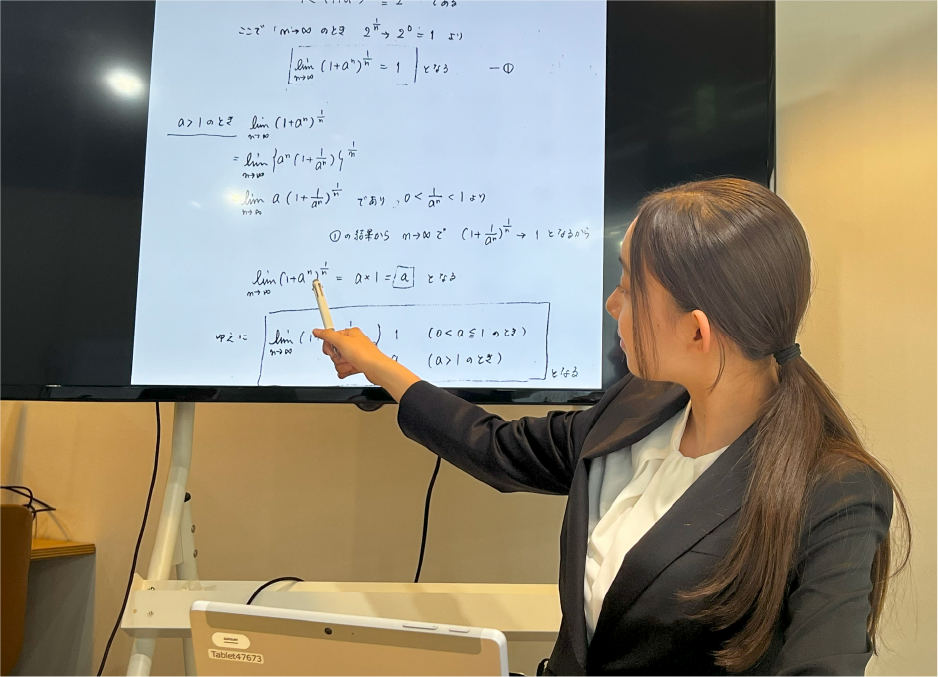 ここで n→∞ のとき 2^{1/n} → 2^0 = 1 より
lim_{n→∞} (1+a^n)^{1/n} = 1 となる ー①
a>1 のとき lim_{n→∞} (1+a^n)^{1/n}
= lim_{n→∞} {a^n(1+1/a^n)}^{1/n}
lim_{n→∞} a(1+1/a^n)^{1/n} であり、0<1/a^n<1 より
①の結果から n→∞で (1+1/a^n)^{1/n} → 1 となるから
lim_{n→∞} (1+a^n)^{1/n} = a×1 = a となる
ゆえに lim_{n→∞} (1 1 (0<a≦1のとき)
a (a>1のとき) となる
Tablet47673